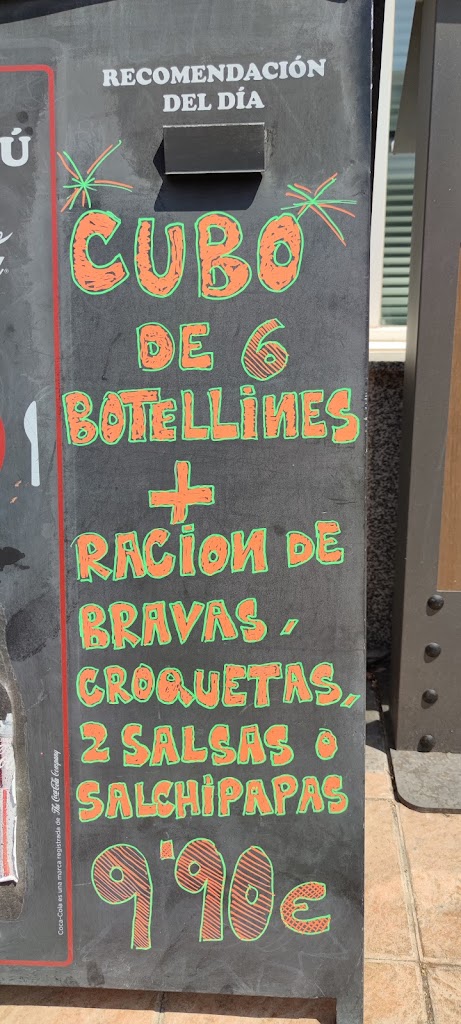 RECOMENDACIÓN
DEL DÍA
Ú
CUBO
DE 6
BOTELLINES
+
RACION DE
BRAVAS,
CROQUETAS,
2 SALSAS O
SALCHIPAPAS
9'90€
Coca-Cola es una marca registrada de The Coca-Cola Company